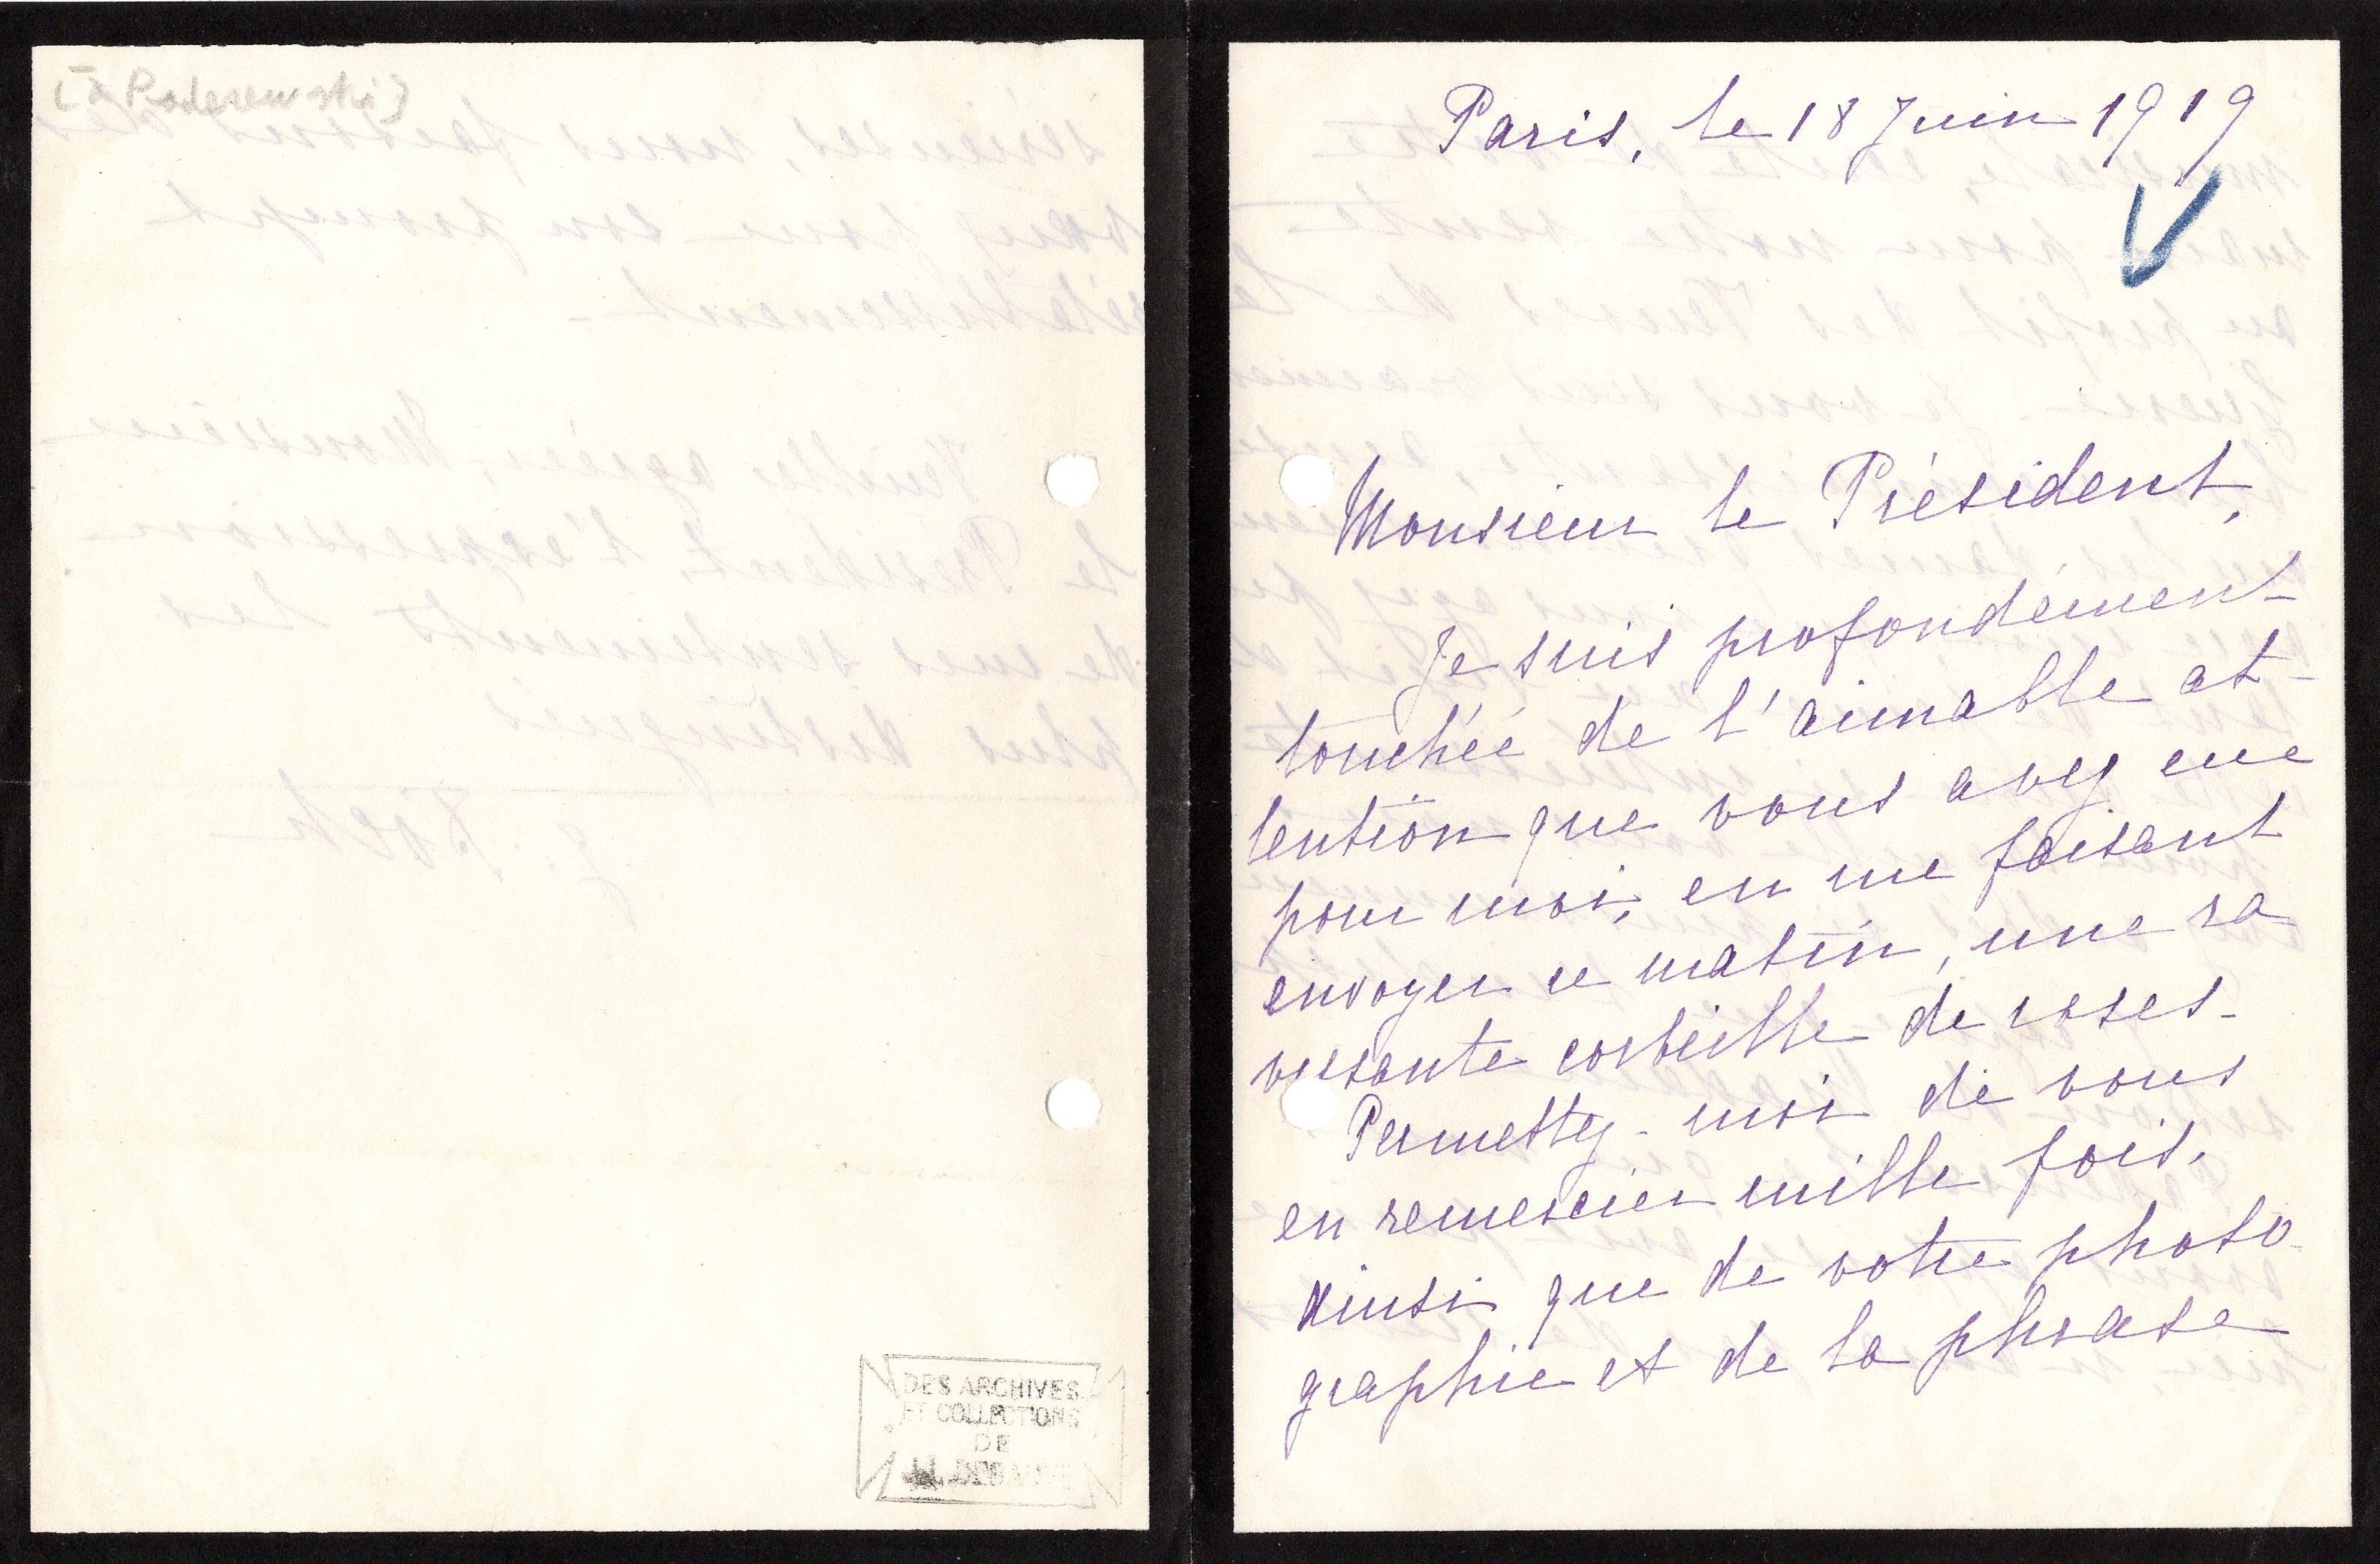 [à Paderewski]
DES ARCHIVES
ET COLLECTIONS
DE
Paris, le 18 Juin 1919
Monsieur le Président,
Je suis profondément
touchée de l'aimable at-
tention que vous avez eue
pour moi, en me faisant
envoyer ce matin, une ra
vissante corbeille de roses.
Permettez-moi de vous
en remercier mille fois,
ainsi que de votre photo-
graphie et de la phrase